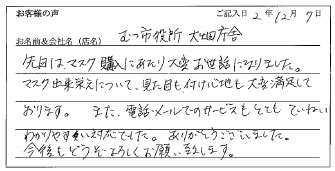 お客様の声 ご記入日 2年12月7日
お名前&会社名(店名) むつ市役所 大畑庁舎
先日は、マスク購入にあたり大変お世話になりました。
マスク出来栄えについて、見た目も付け心地も大変満足して
おります。 また、電話・メールでのサービスもとても ていねい
わかりやすい対応でした。ありがとうございました。
今後もどうぞよろしくお願い致します。